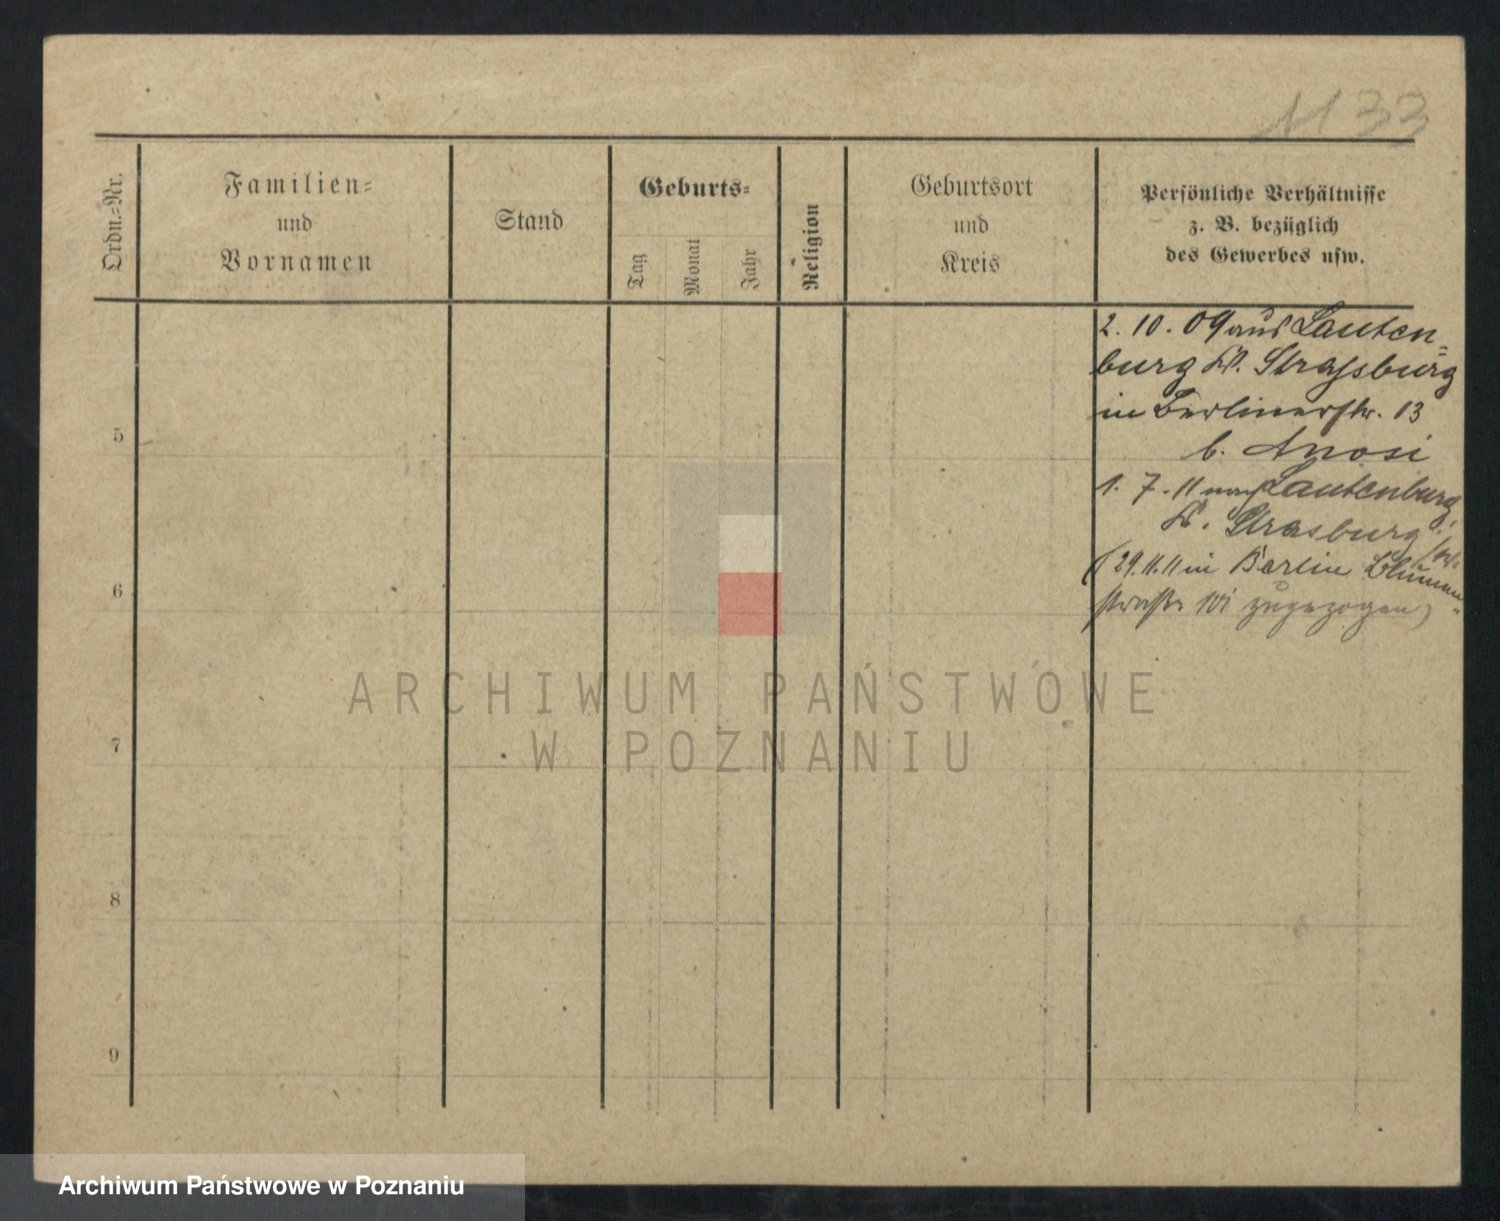 1133
Ordn.-Nr.
Familien-
und
Vornamen
Stand
Geburts-
Tag
Monat
Jahr
Religion
Geburtsort
und
Kreis
Persönliche Verhältnisse
z. B. bezüglich
des Gewerbes usw.
2. 10. 09 aus Lauten-
burg Kr. Strassburg
in Berlinerstr. 13
b. Anosi
1. 7. 11 nach Lautenburg
Kr. Strasburg
(29.11.11 in Berlin Blumen-
straße 101 zugezogen)
5
6
7
8
9
ARCHIWUM PAŃSTWOWE
W POZNANIU
Archiwum Państwowe w Poznaniu